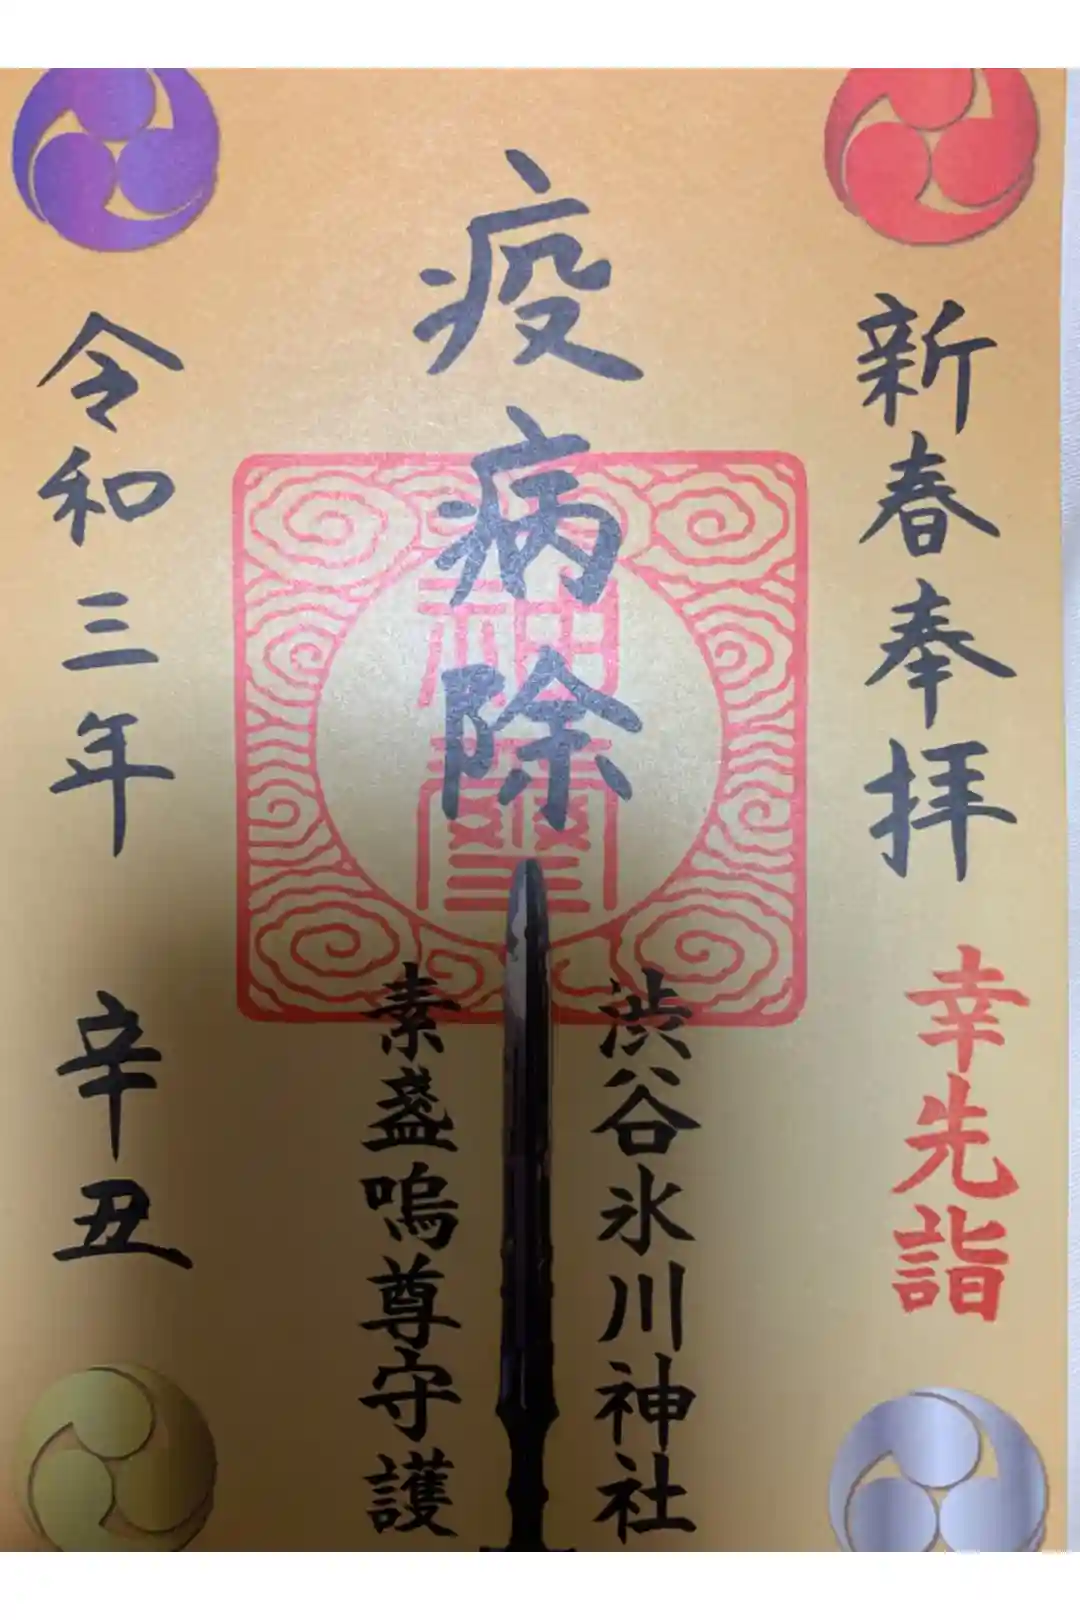 新春奉拝
幸先詣
疫病除
神璽
渋谷氷川神社
素盞嗚尊守護
令和三年
辛丑